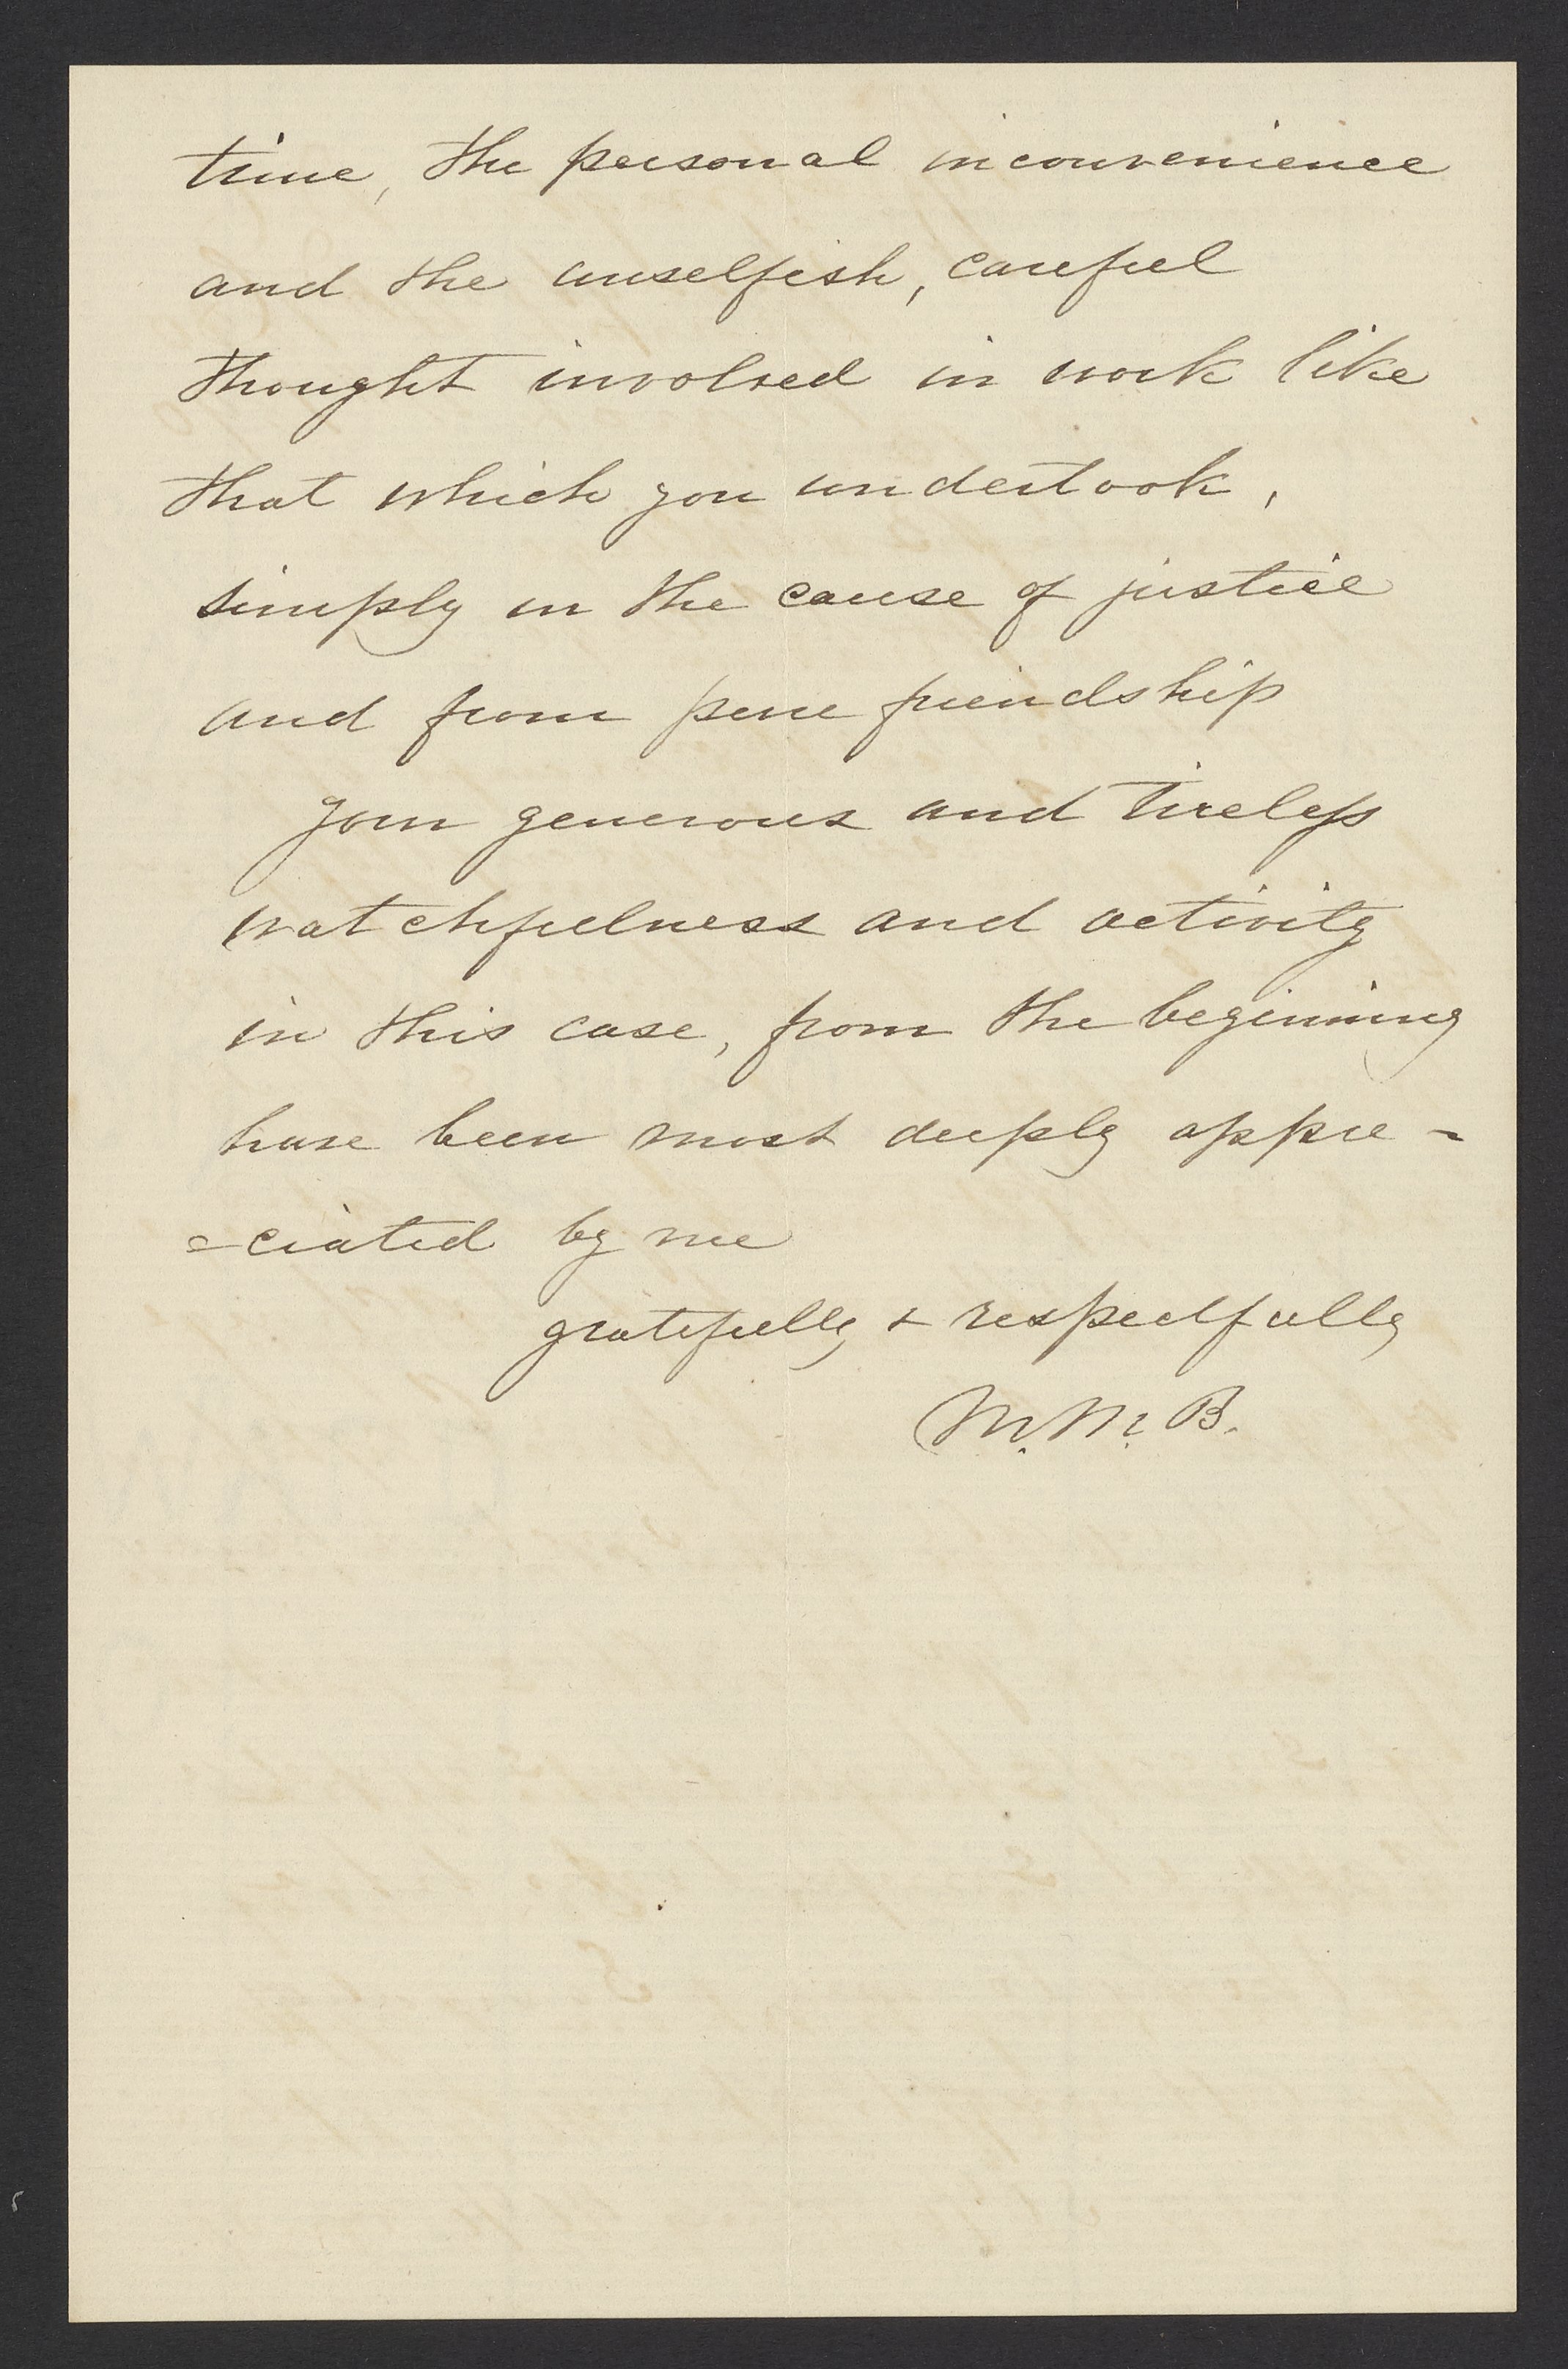 time, the personal inconvenience
and the unselfish, careful
thought involved in work like
that which you undertook,
simply in the cause of justice
and from pure friendship
Your generous and tireless
watchfulness and activity
in this case, from the beginning
have been most deeply appre-
=ciated by me
gratefully & respectfully
M. M. B.